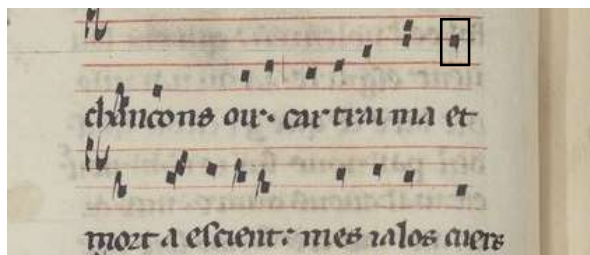 chancons oir. car trai ma et
mort a escient: mes ialos cuers